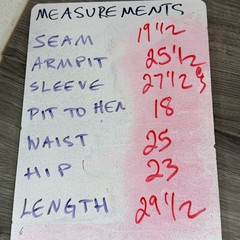 MEASUREMENTS
SEAM 19 1/2
ARMPIT 25 1/2
SLEEVE 27 1/2
PIT TO HEM 18
WAIST 25
HIP 23
LENGTH 29 1/2